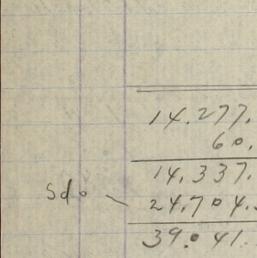 14.277.
60.
14,337.
Sdo 24.704.
39.041.